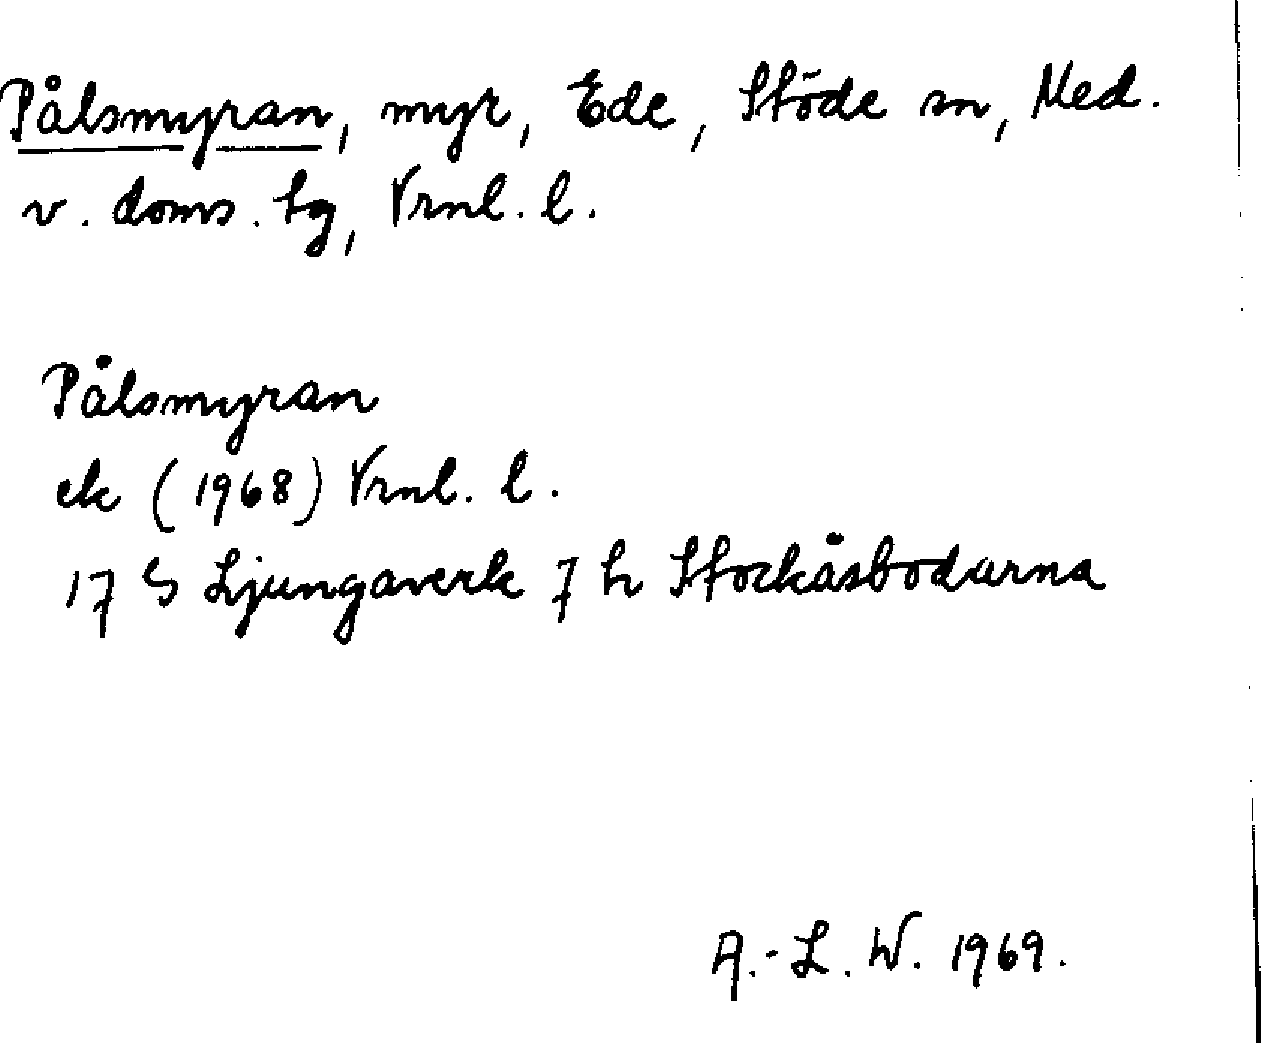 Pålsmyran, myr, Ede, Stöde sn, Med.
v. doms. tg, Vrnl. l.
Pålsmyran
ek (1968) Vrnl. l.
17 G Ljungaverk 7 h Stockåsbodarna
A.-L. W. 1969.